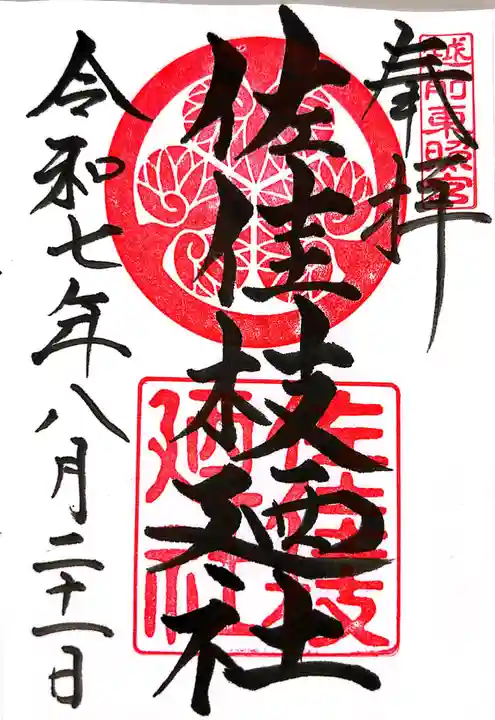 越前東照宮
奉拝
佐佳枝廼社
佐佳枝
廼社
令和七年八月二十一日